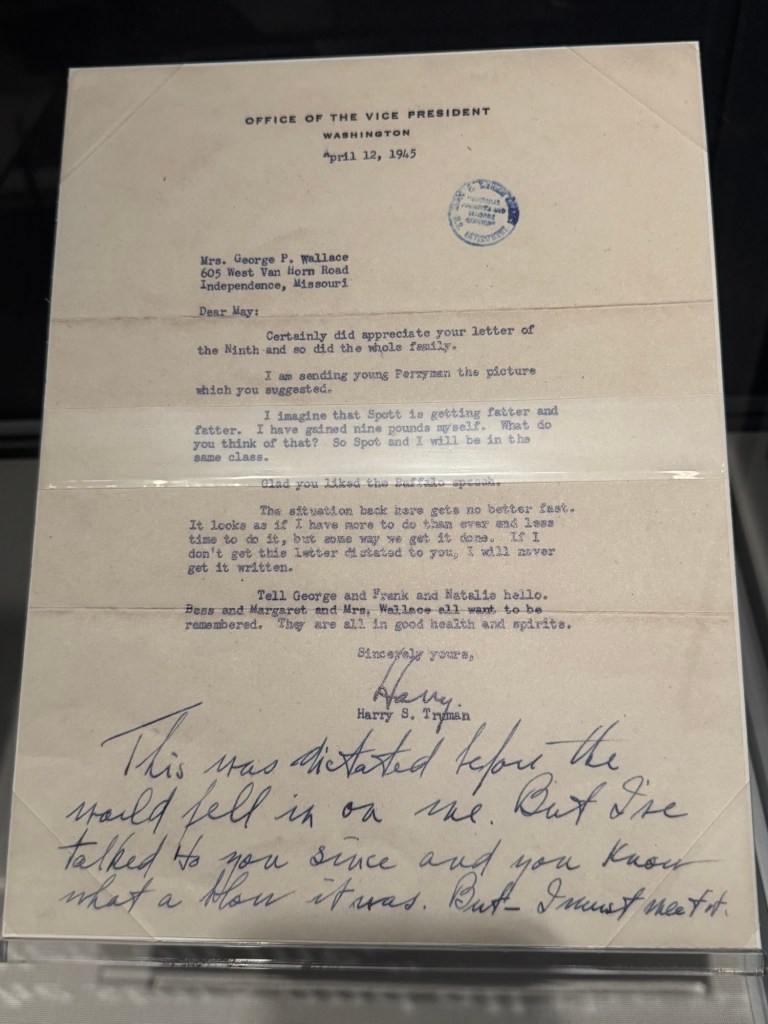 OFFICE OF THE VICE PRESIDENT
WASHINGTON
April 12, 1945
Mrs. George P. Wallace
605 West Van Horn Road
Independence, Missouri
Dear May:
Certainly did appreciate your letter of
the Ninth and so did the whole family.
I am sending young Perryman the picture
which you suggested.
I imagine that Spott is getting fatter and
fatter. I have gained nine pounds myself. What do
you think of that? So Spot and I will be in the
same class.
Glad you liked the Buffalo speech.
The situation back here gets no better fast.
It looks as if I have more to do than ever and less
time to do it, but some way we get it done. If I
don't get this letter dictated to you, I will never
get it written.
Tell George and Frank and Natalie hello.
Bess and Margaret and Mrs. Wallace all want to be
remembered. They are all in good health and spirits.
Sincerely yours,
Harry.
Harry S. Truman
This was dictated before the
world fell in on me. But I've
talked to you since and you know
what a blow it was. But– I must meet it.